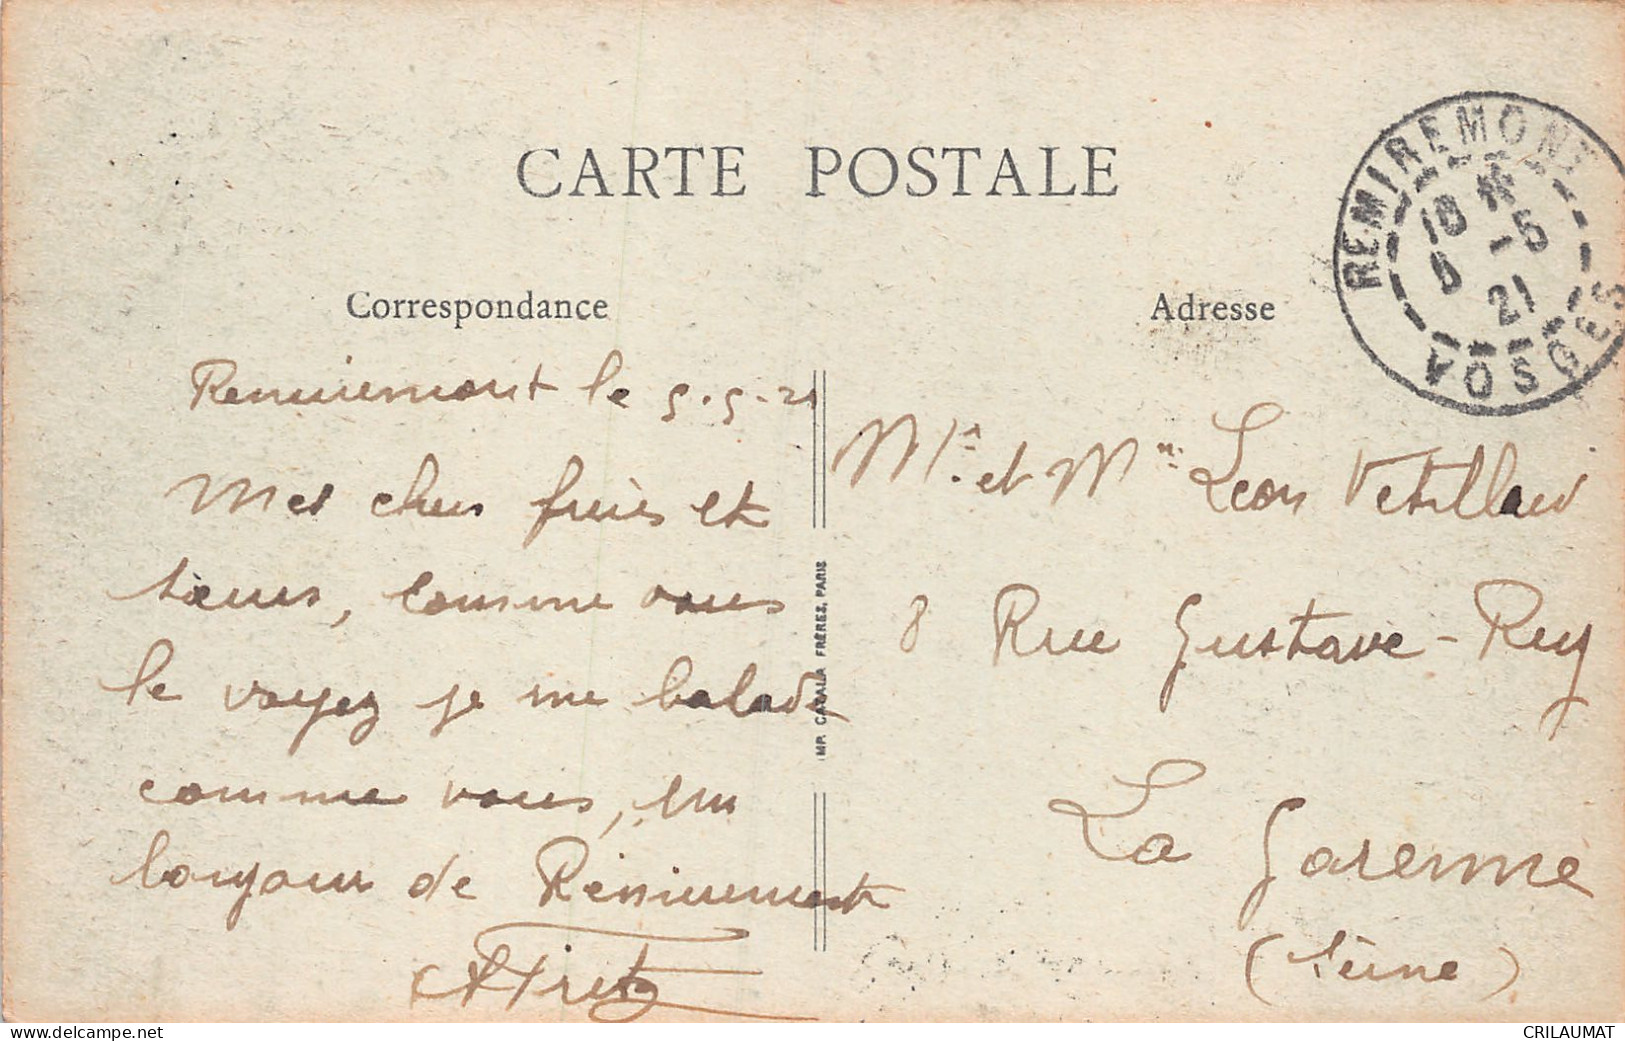 CARTE POSTALE
REMIREMONT
18 H
5 -5
21
VOSGES
Correspondance
Adresse
Remiremont le 5.5.21
Mes chers frères et
sœurs, comme vous
le voyez je me balade
comme vous, un
bonjour de Remiremont
IMP. CAGALA FRÈRES, PARIS
Mr. et Mme Leon
8 Rue Gustave-Rey
La Garenne
(Seine)
www.delcampe.net
CRILAUMAT